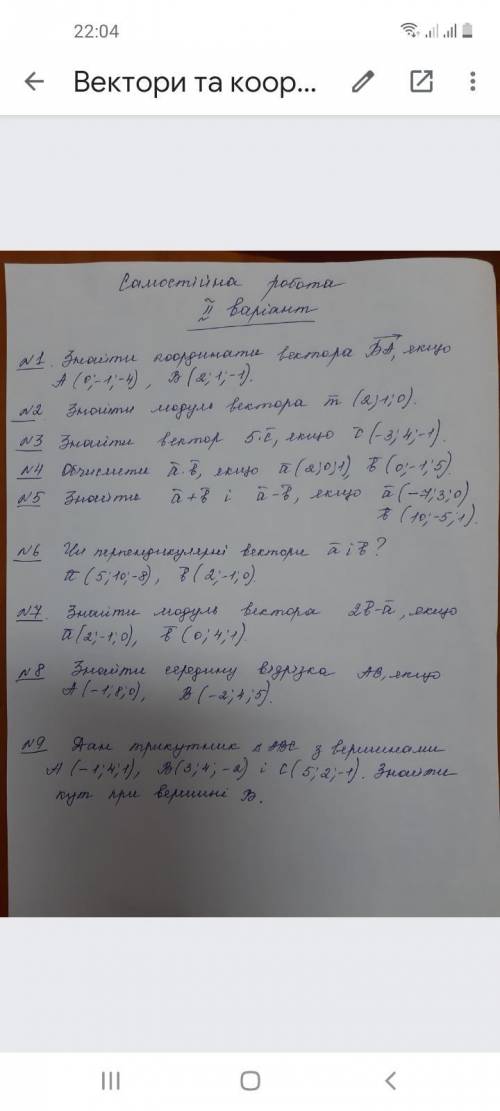 22:04
Вектори та коор...
Самостійна робота
II варіант
№1. Знайти координати вектора BA, якщо
A (0;-1;-4), B (2;1;-1).
№2 Знайти модуль вектора m (2;1;0).
№3 Знайти вектор 5·c, якщо c (-3;4;-1).
№4 Обчислити a·b, якщо a (2;0;1), b (0;-1;5).
№5 Знайти a+b і a-b, якщо a (-7;3;0)
b (10;-5;1).
№6 Чи перпендикулярні вектори a і b?
a (5;10;-8), b (2;-1;0).
№7. Знайти модуль вектора 2b-a, якщо
a (2;-1;0), b (0;4;1).
№8 Знайти середину відрізка AB, якщо
A (-1;8;0), B (-2;4;5).
№9 Дан трикутник Δ ABC з вершинами
A (-1;4;1), B (3;4;-2) і C (5;2;-1). Знайти
кут при вершині B.